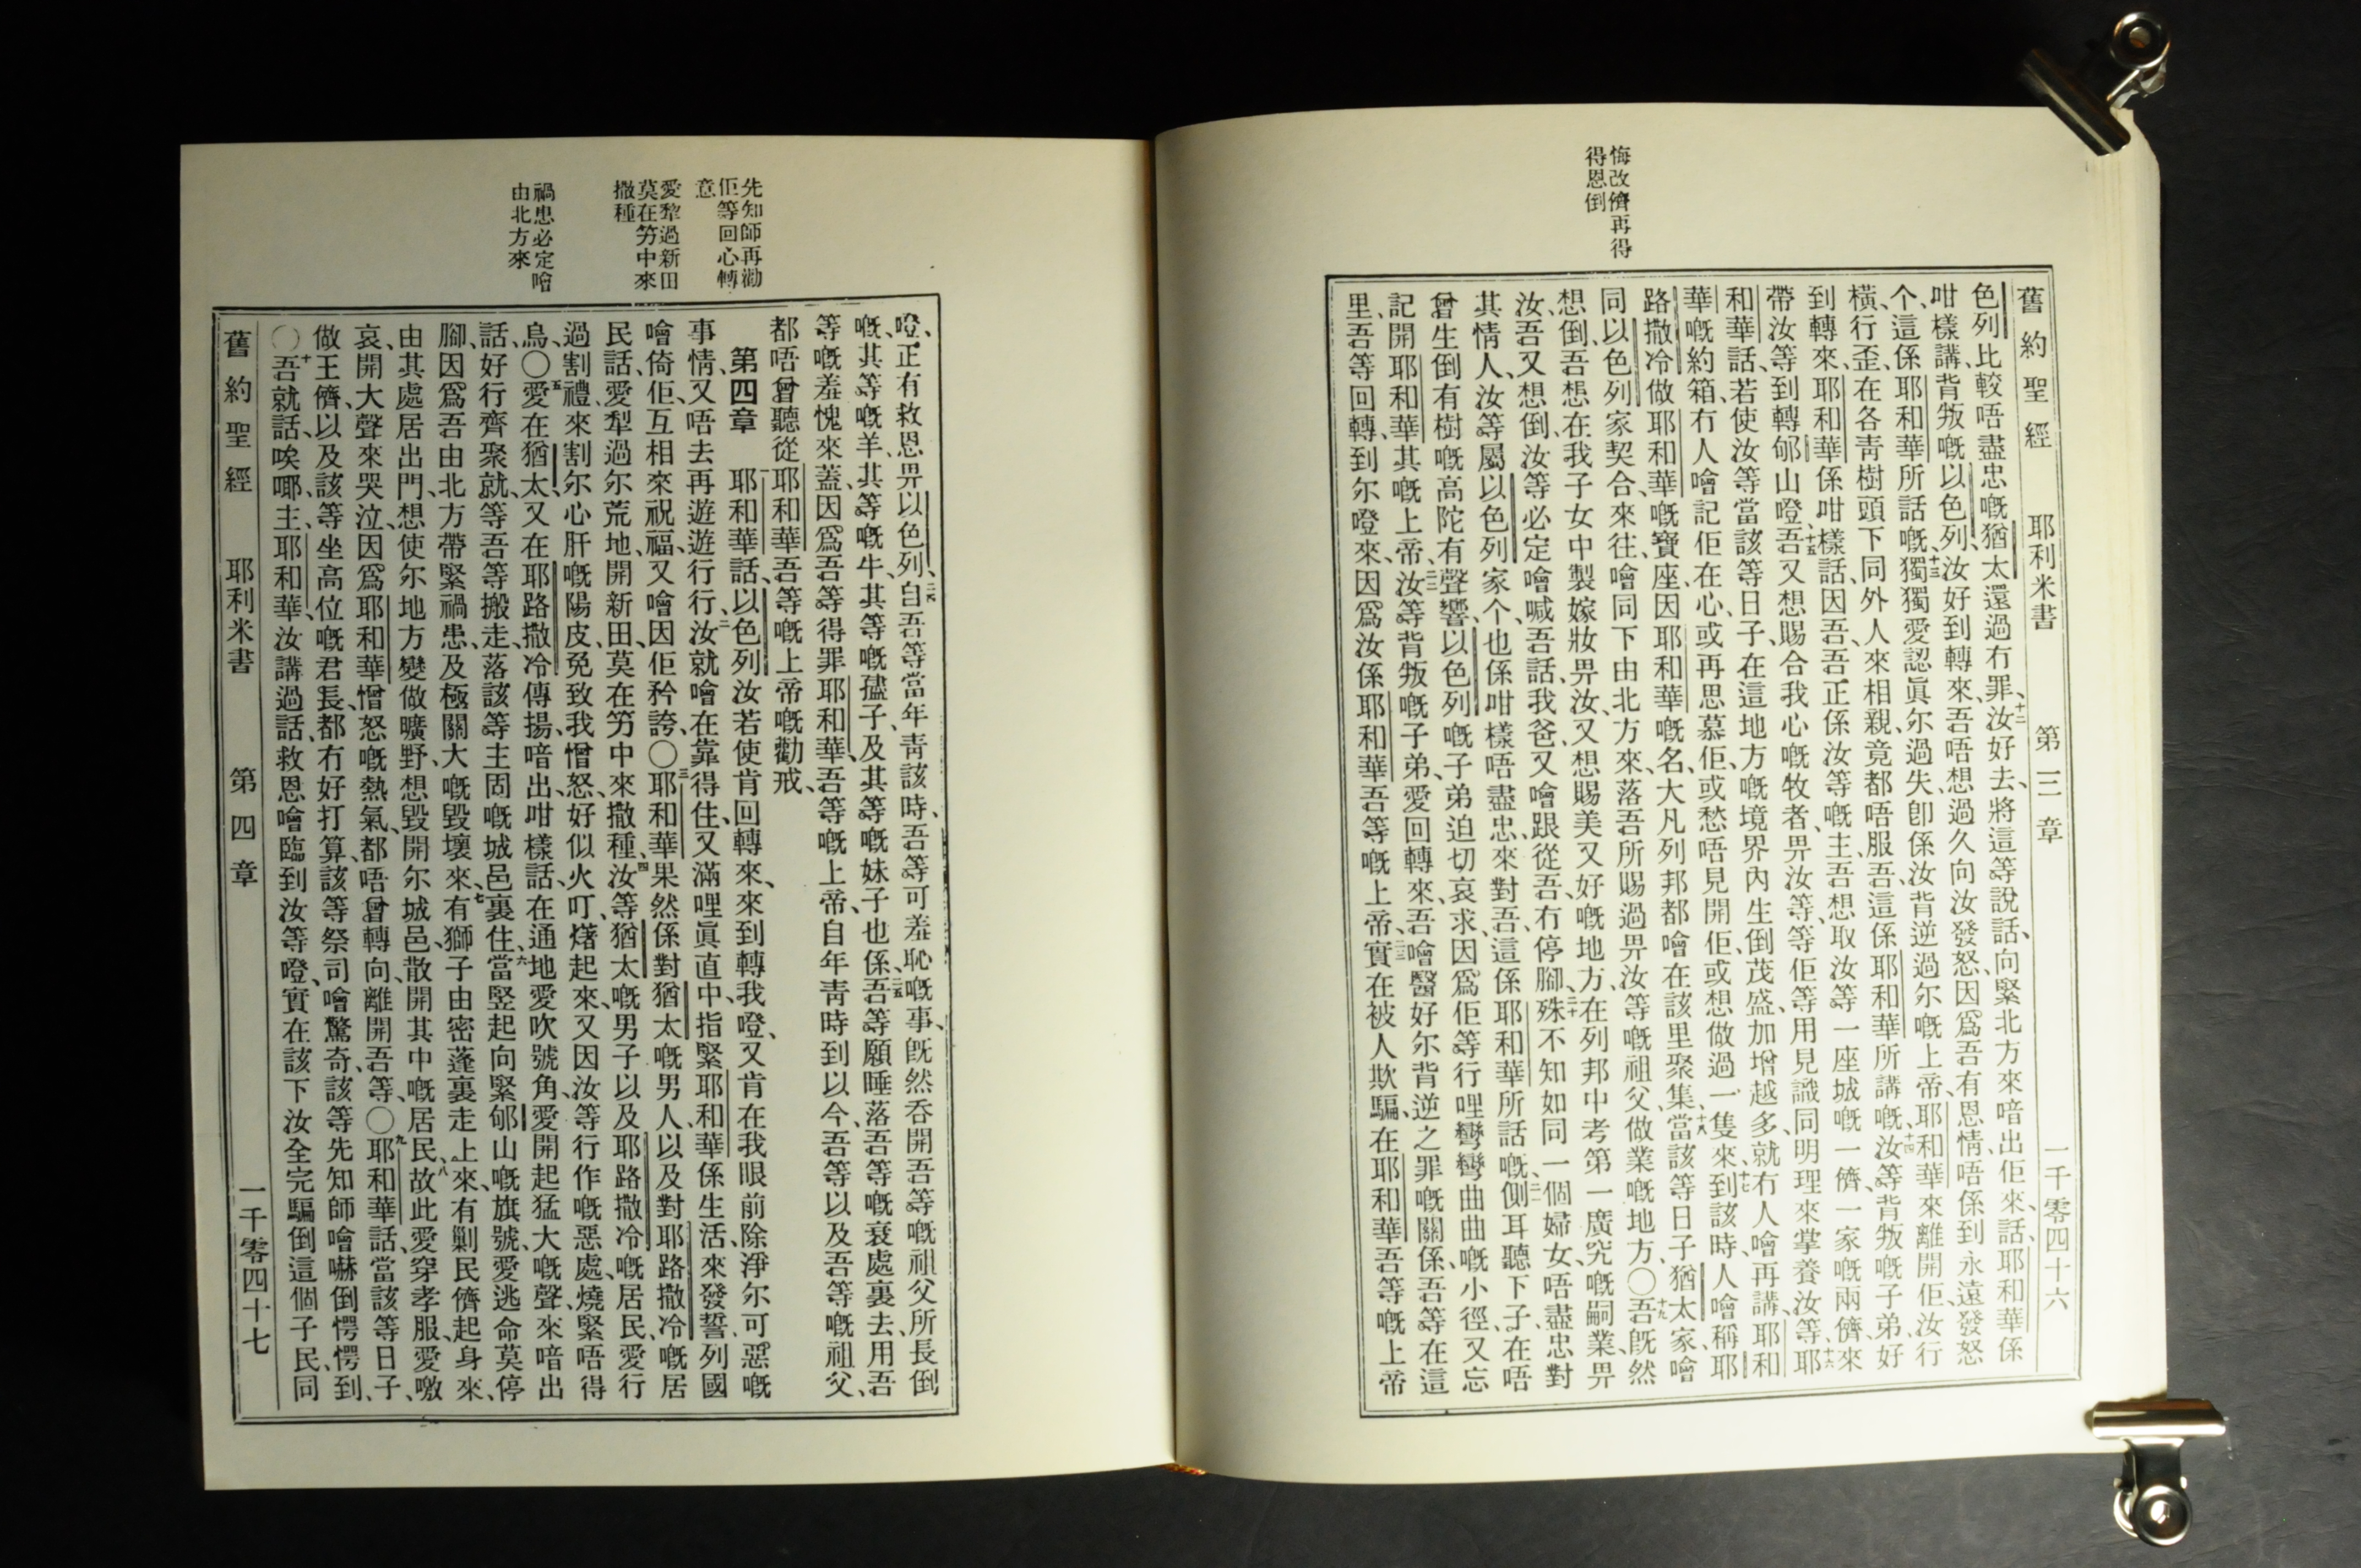 悔改儕再得
得恩倒
舊約聖經　耶利米書　第三章　一千零四十六
色列比較唔盡忠嘅猶太還過冇罪、十二汝好去、將這等說話、向緊北方來喑出佢來、話、耶和華係
咁樣講、背叛嘅以色列、汝好到轉來、吾唔想過久向汝發怒、因爲吾有恩情唔係到永遠發怒
个、這係耶和華所話嘅、十三獨獨愛認眞尔過失、卽係汝背逆過尔嘅上帝、耶和華來離開佢、汝行
橫、行歪、在各靑樹頭下同外人來相親、竟都唔服吾、這係耶和華所講嘅、十四汝等背叛嘅子弟、好
到轉來、耶和華係咁樣話、因吾、吾正係汝等嘅主、吾想取汝等一座城嘅一儕、一家嘅兩儕、來
帶汝等到轉郇山噔、十五吾又想賜合我心嘅牧者、畀汝等、等佢等用見識同明理來掌養汝等、十六耶
和華話、若使汝等當該等日子、在這地方嘅境界內生倒茂盛、加增越多、就冇人噲再講、耶和
華嘅約箱、冇人噲記佢在心、或再思慕佢、或愁唔見開佢、或想做過一隻來、十七到該時、人噲稱耶
路撒冷做耶和華嘅寶座、因耶和華嘅名、大凡列邦都噲在該里聚集、十八當該等日子猶太家、噲
同以色列家契合來往、噲同下由北方來、落吾所賜過畀汝等嘅祖父做業嘅地方、〇十九吾旣然
想倒、吾想在我子女中製嫁妝畀汝、又想賜美又好嘅地方、在列邦中考第一廣究嘅嗣業、畀
汝、吾又想倒、汝等必定噲喊吾話、我爸、又噲跟從吾、冇停腳、二十殊不知如同一個婦女、唔盡忠對
其情人、汝等屬以色列家个、也係咁樣唔盡忠、來對吾、這係耶和華所話嘅、二一側耳聽下子、在唔
曾生倒有樹嘅高陀、有聲響、以色列嘅子弟迫切哀求、因爲佢等行哩彎彎曲曲嘅小徑、又忘
記開耶和華其嘅上帝、二二汝等背叛嘅子弟、愛回轉來、吾噲醫好尔背逆之罪嘅關係、吾等在這
里、吾等回轉、到尔噔來、因爲汝係耶和華吾等嘅上帝、二三實在被人欺騙、在耶和華吾等嘅上帝
先知師再勸
佢等回心轉
意
愛犂過新田
莫在竻中來
撒種
禍患必定噲
由北方來
噔、正有救恩畀以色列、二四自吾等當年靑該時、吾等可羞恥嘅事、旣然呑開吾等嘅祖父、所長倒
嘅、其等嘅羊、其等嘅牛、其等嘅孻子、及其等嘅妹子也係、二五吾等願睡落吾等嘅衰處裏去、用吾
等嘅羞愧來蓋、因爲吾等得罪耶和華、吾等嘅上帝、自年靑時到以今、吾等以及吾等嘅祖父、
都唔曾聽從耶和華吾等嘅上帝嘅勸戒、
第四章　耶和華話、以色列汝若使肯回轉來、來到轉我噔、又肯在我眼前除淨尔可惡嘅
事情、又唔去再遊遊行行、二汝就噲在靠得住、又滿哩眞直中、指緊耶和華係生活、來發誓、列國
噲倚佢、互相來祝福、又噲因佢矜誇、〇三耶和華果然係對猶太嘅男人、以及對耶路撒冷嘅居
民話、愛犁過尔荒地、開新田、莫在竻中來撒種、四汝等猶太嘅男子以及耶路撒冷嘅居民、愛行
過割禮、來割尔心肝嘅陽皮、免致我憎怒、好似火叮、㷮起來、又因汝等行作嘅惡處、燒緊唔得
烏、〇五愛在猶太、又在耶路撒冷傳揚、喑出咁樣話、在通地愛吹號角、愛開起猛大嘅聲、來喑出
話、好行齊聚就、等吾等搬走、落該等主固嘅城邑裏住、六當竪起向緊郇山嘅旗號、愛逃命莫停
腳、因爲吾由北方帶緊禍患、及極關大嘅毀壞來、七有獅子由密蓬裏走上來、有剿民儕起身來、
由其處居出門、想使尔地方變做曠野、想毀開尔城邑、散開其中嘅居民、八故此愛穿孝服、愛噭
哀、開大聲來哭泣、因爲耶和華憎怒嘅熱氣、都唔曾轉向、離開吾等、〇九耶和華話、當該等日子、
做王儕、以及該等坐高位嘅君長、都冇好打算、該等祭司噲驚奇、該等先知師噲嚇倒愕愕到、
〇十吾就話、唉㖿、主、耶和華、汝講過話、救恩噲臨到汝等噔、實在該下汝全完騙倒這個子民、同
舊約聖經　耶利米書　第四章　一千零四十七